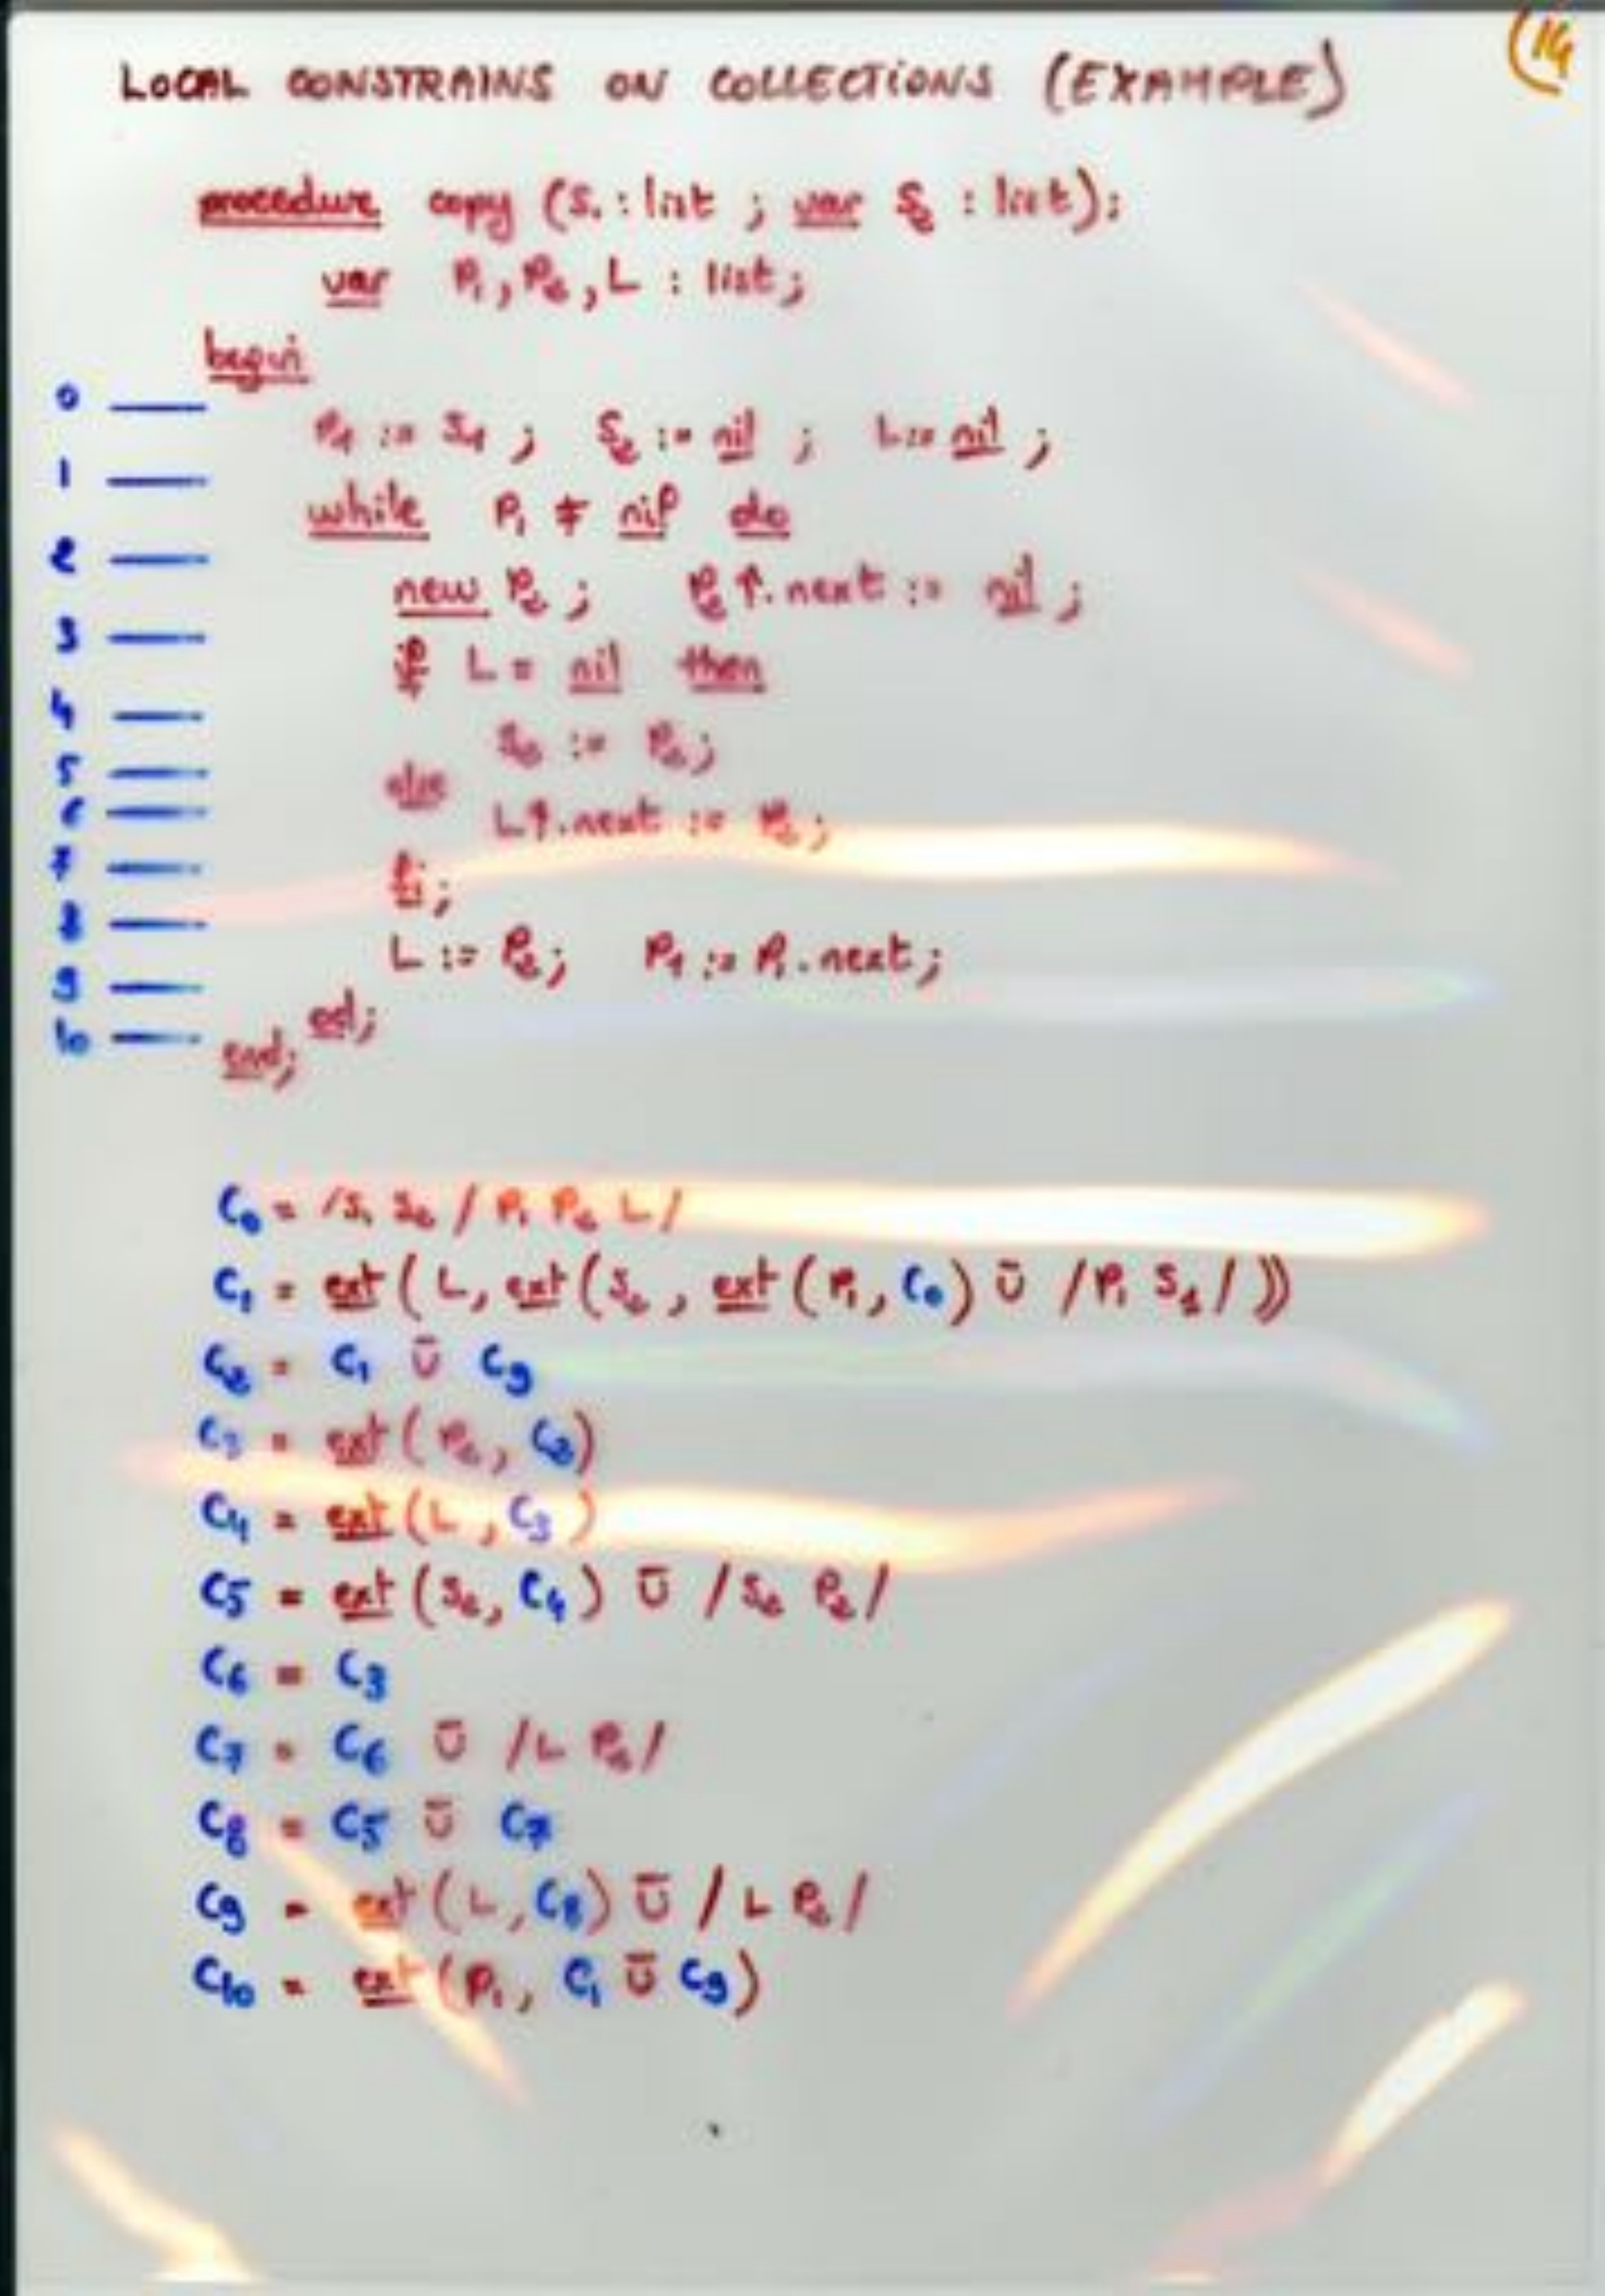 (14
LOCAL CONSTRAINS ON COLLECTIONS (EXAMPLE)
procedure copy (S₁ : list ; var S₂ : list);
var P₁, P₂, L : list;
begin
0
P₁ := S₁ ; S₂ := nil ; L := nil ;
1
while P₁ ≠ nil do
2
new P₂ ; P₂↑.next := nil ;
3
if L = nil then
4
S₂ := P₂;
5
else
6
L↑.next := P₂;
7
fi;
8
L := P₂; P₁ := P₁.next;
9
od;
10
end;
C₀ = /S₁ S₂ / P₁ P₂ L /
C₁ = ext ( L, ext ( S₂ , ext ( P₁, C₀ ) Ū /P₁ S₁/ ))
C₂ = C₁ Ū C₉
C₃ = ext ( P₂, C₂)
C₄ = ext ( L , C₃ )
C₅ = ext ( S₂, C₄ ) Ū / S₂ P₂ /
C₆ = C₃
C₇ = C₆ Ū /L P₂/
C₈ = C₅ Ū C₇
C₉ = ext ( L, C₈ ) Ū / L P₂ /
C₁₀ = ext ( P₁, C₁ Ū C₉ )